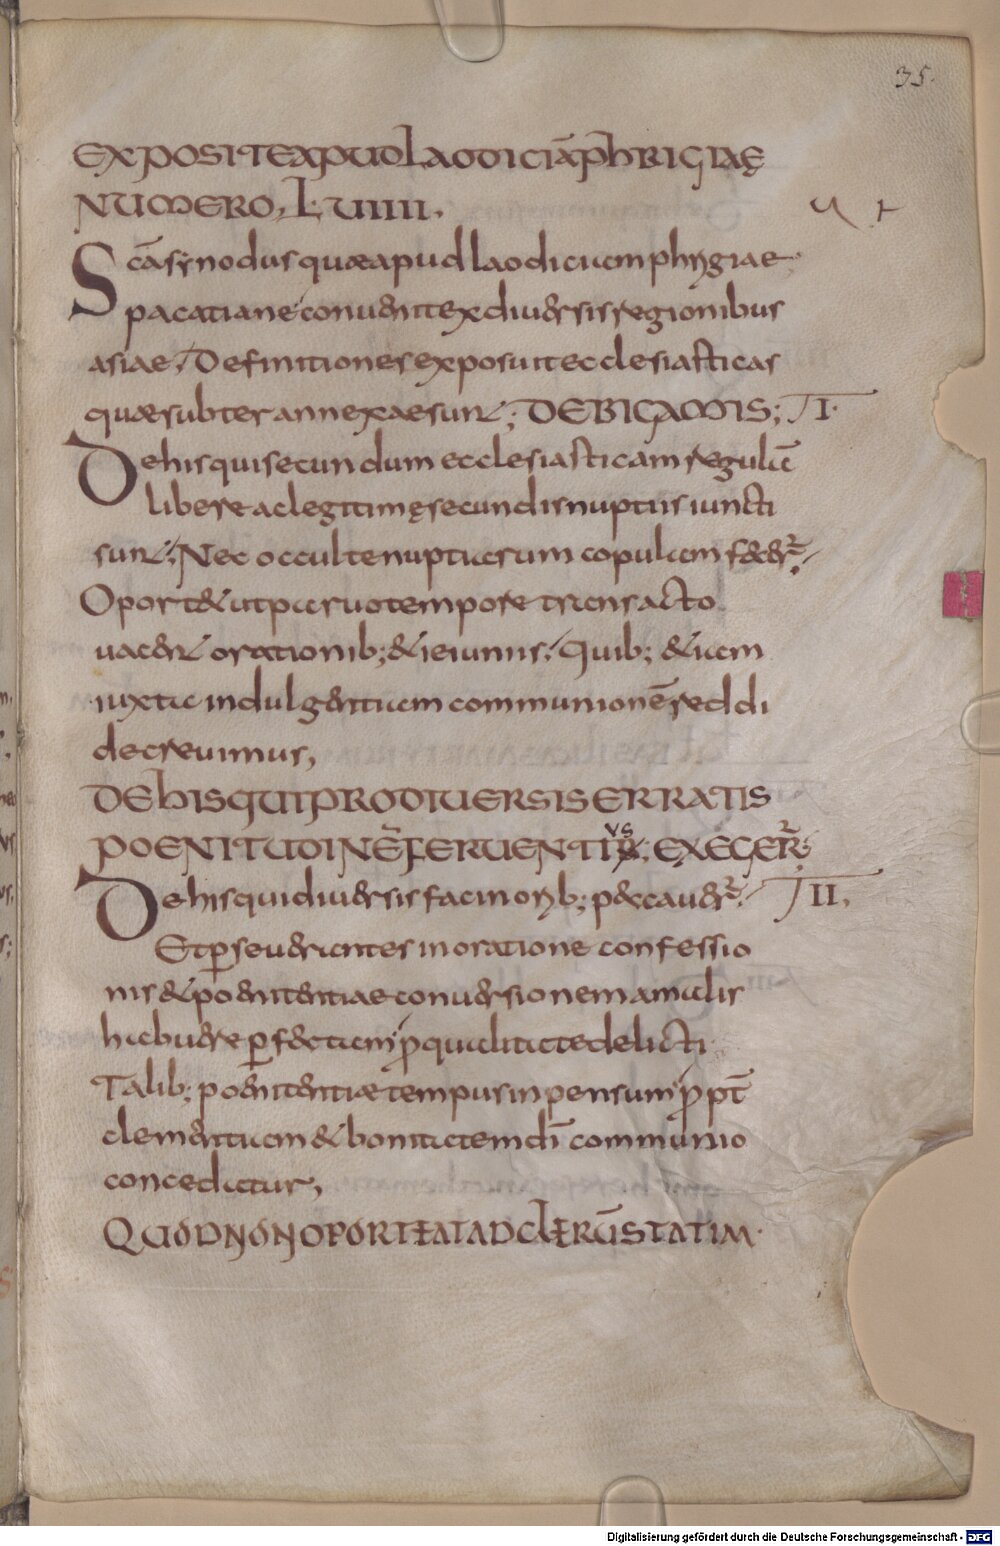 35.
EXPOSITEAPUOLAODICIĀPhRIGIAĘ
NUMERO, LVIIII.
Scāsynodus quae apud laodiciam phrygiae
pacatiane convenit ex diversis regionibus
asiae, Definitiones exposuit ecclesiasticas
quae subter annexae sunt; DE BIGAMIS; TI.
De his qui secundum ecclesiasticam regulā
libere ac legitimę secundis nuptiis iuncti
sunt; Nec occulte nuptiarum copulam feceř;
Oportet ut parvo tempore transacto
vacent orationib; et ieiuniis; Quib; etiam
iuxta indulgentiam communionē reddi
decrevimus,
DE hIS QUI PRO DIVERSIS ERRATIS
POENITUDINĒ FERVENTIUS EXEGER̄.
De his qui diversis facinorib; peccaver̄. TII.
Et p̱severantes in oratione confessio
nis et poenitentiae conversionem a malis
habuere p̱fectam, p̱ qualitate delicti
Talib; poenitentiae tempus inpensum p̱pt̄
clementiam et bonitatem dī communio
concedatur,
QUOD NON OPORTEAT AD CLERŪ STATIM.
Digitalisierung gefördert durch die Deutsche Forschungsgemeinschaft - DFG